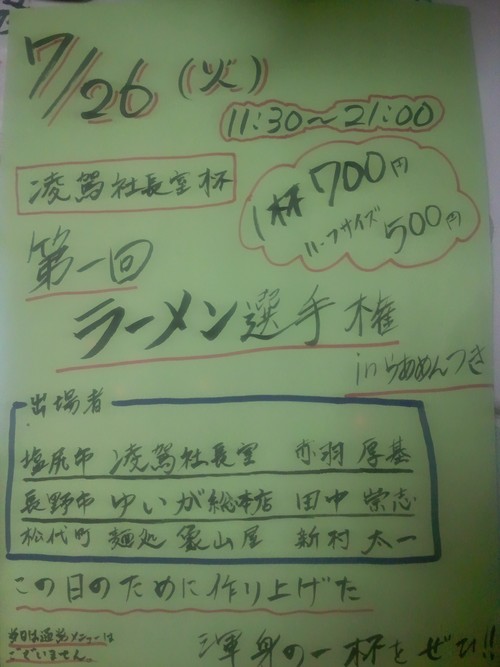 7/26(火)
11:30〜21:00
凌駕社長室杯
1杯700円
ハーフサイズ500円
第一回
ラーメン選手権
inらあめんつき
出場者
塩尻市 凌駕社長室 赤羽厚基
長野市 ゆいが総本店 田中崇志
松代町 麺処 象山屋 新村太一
この日のために作り上げた
渾身の一杯をぜひ!!
当日は通常メニューは
ございません。